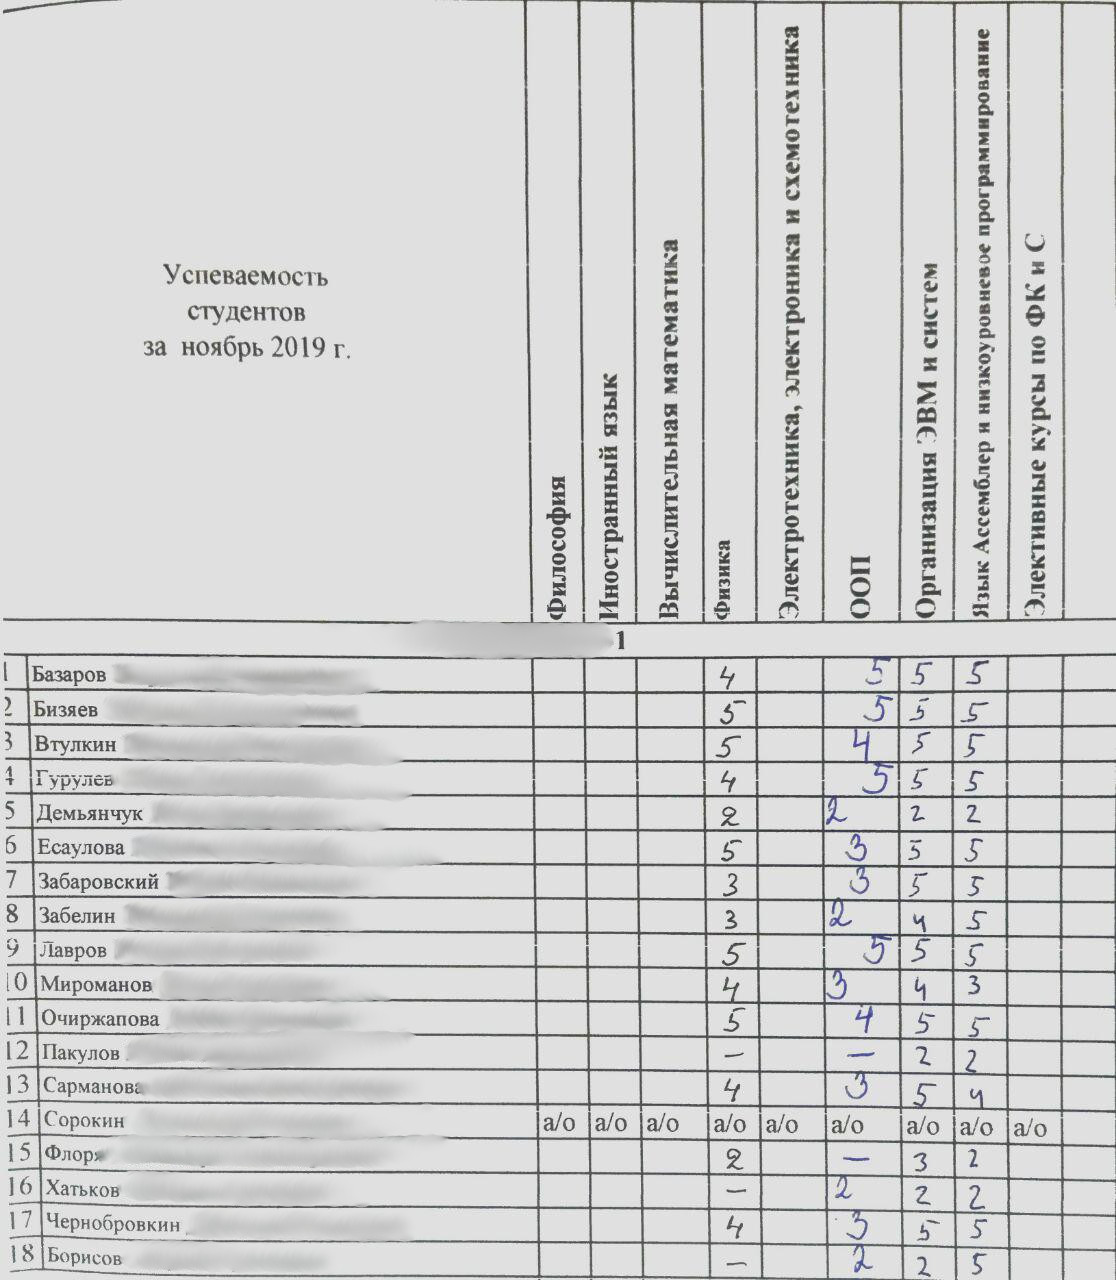 Успеваемость
студентов
за ноябрь 2019 г.
Философия
Иностранный язык
Вычислительная математика
Физика
Электротехника, электроника и схемотехника
ООП
Организация ЭВМ и систем
Язык Ассемблер и низкоуровневое программирование
Элективные курсы по ФК и С
1
1 Базаров 4 5 5 5
2 Бизяев 5 5 5 5
3 Втулкин 5 4 5 5
4 Гурулев 4 5 5 5
5 Демьянчук 2 2 2 2
6 Есаулова 5 3 5 5
7 Забаровский 3 3 5 5
8 Забелин 3 2 4 5
9 Лавров 5 5 5 5
10 Мироманов 4 3 4 3
11 Очиржапова 5 4 5 5
12 Пакулов – – 2 2
13 Сарманова 4 3 5 4
14 Сорокин а/о а/о а/о а/о а/о а/о а/о а/о а/о
15 Флоря 2 – 3 2
16 Хатьков – 2 2 2
17 Чернобровкин 4 3 5 5
18 Борисов – 2 2 5